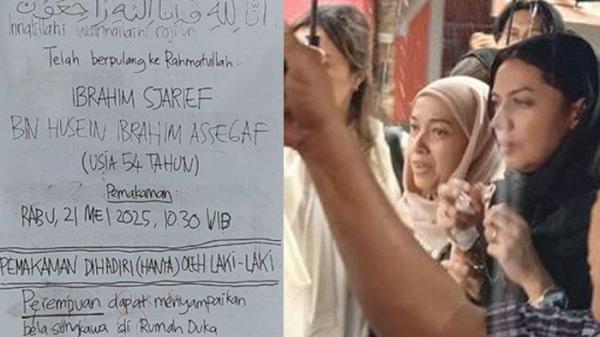 انا لله وانا اليه راجعون
Innalilahi wainnailaihi rojiun
Telah berpulang ke Rahmatullah:
IBRAHIM SJARIEF
BIN HUSEIN IBRAHIM ASSEGAF
(USIA 54 TAHUN)
Pemakaman:
RABU, 21 MEI 2025, 10.30 WIB
PEMAKAMAN DIHADIRI (HANYA) OLEH LAKI-LAKI
Perempuan dapat menyampaikan
bela sungkawa di Rumah Duka